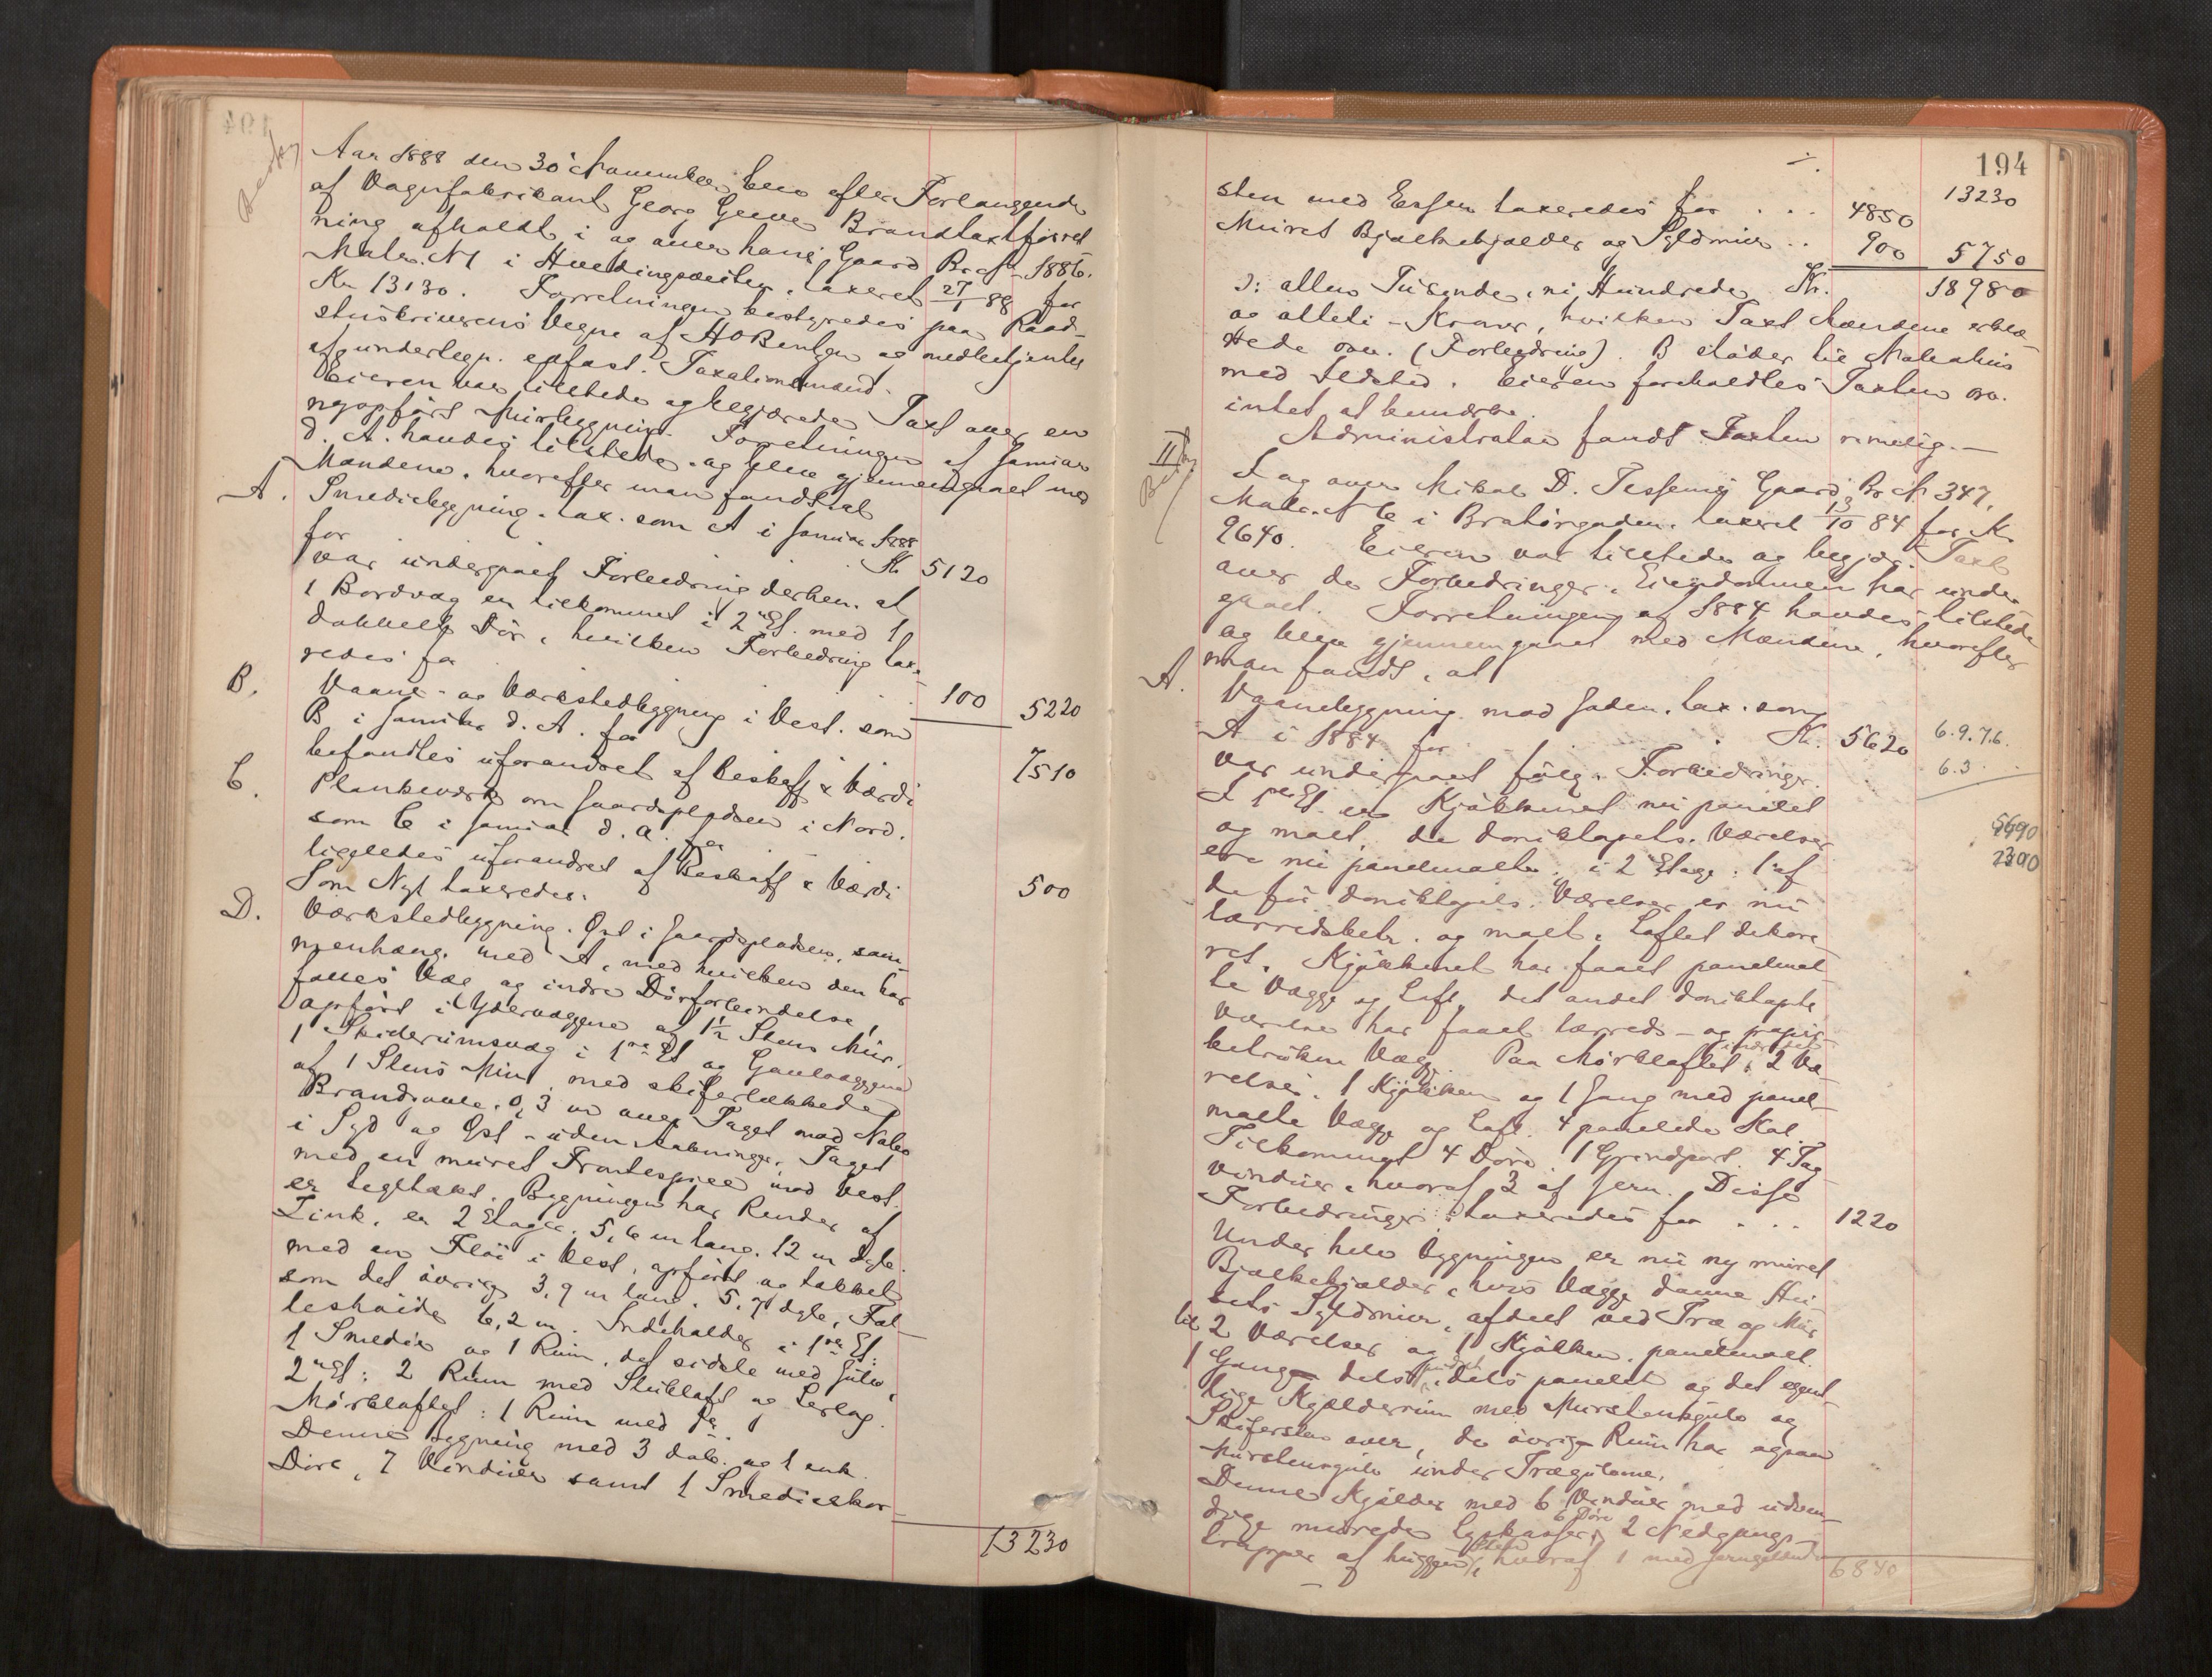 Aar 1888 den 30 November blev efter Forlangende
af Vognfabrikant Georg Greve Brandtaxtforret
ning afholdt i og over hans Gaard Br. № 1886.
Matr. № 1 i Hveding taxeret 27/1 88 for
Kr 13130. Forretningen bestyredes paa Raad-
stuskriverens Vegne af H O Bentzen og medbetjentes
af undertegn. edfast. Taxationsmænd.
Eieren var tilstede og begjærede Taxt over en
nyopført Murbygning. Forretningen af Januar
d. A. havdes tilstede og blev gjennemgaaet med
Mændene, hvorefter man fandt at
A. Smediebygning tax. som A i Januar 1888
for Kr 5120
var undergaaet Forbedring derhen. at
1 Bordvæg er tilkommet i 2 Et. med 1
dobbelt Dør, hvilken Forbedring taxe-
redes for 100 5220
B. Vaane- og Værkstedbygning i Vest. som
B i Januar d. A. for
befandtes uforandret af Beskaff. & Værdi 7510
C. Plankeværk om Gaardspladsen i Nord.
som C i Januar d. A. for
ligeledes uforandret af Beskaff & Værdi 500
Som Nyt taxeredes.
D. Værkstedbygning. Øst i Gaardspladsen, sam-
menhæng. med A, med hvilken den har
fælles Væg og indre Dørforbindelse,
opført i Ydervæggene af 1½ Stens Mur.
1 Skiderumsvæg i 1ste Et og Gavlvæggene
af 1 Stens Mur, med skifertækkede
Brandmure. 0,3 m over Taget mod Nabo
i Syd og Øst - uden Aabninger. Taget
med en muret Frontespice mod Vest.
er tegltækt. Bygningen har Render af
Zink, er 2 Etager. 5,6 m lang. 12 m dyb.
med en Fløi i Vest, opført og tækket
som det øvrige 3,9 m lang. 5,7 dyb, Fæl-
leshøide 6,2 m. Indeholder i 1ste Et:
1 Smedie og 1 Rum, det sidste med Gulv,
2 Et: 2 Rum med Stubloft og Lerlag.
Mørkloftet: 1 Rum med do.
Denne Bygning med 3 dob. og 1 enk.
Døre, 7 Vinduer samt 1 Smedieskor-
13230
194
13230
sten med Essen taxeredes for . . . 4850
Muret Bjælkekjælder og Syldmur .. 900 5750
Kr. 18980
ɔ: atten Tusende, ni Hundrede
og otteti - Kroner, hvilken Taxt Mændene erklæ-
rede (Forbedring). B støder til Nabohus
med Ildsted. Eieren foreholdtes Taxten
intet at bemærke.
Administrator fandt Taxten rimelig. —
II
I og over Mikal D. Tessems Gaard, Br № 347,
Matr. № 6 i Bratørgaden. taxeret 13/10 84 for Kr
9640. Eieren var tilstede og begjær. Taxt
over de Forbedringer, Eiendommen har under
gaaet. Forretningen af 1884 havdes tilstede
og blev gjennemgaaet med Mændene, hvorefter
man fandt, at
A. Vaanebygning mod Gaden. tax. som
A i 1884 for Kr. 5620
6.9.7.6.
6.3
var undergaaet følg. Forbedringer.
I 1ste Et. er Kjøkkenet nu panelet
og malt, de doniktapets. Værelser
ere nu panelmalte. i 2 Etage. 1 af
de før doniktapets. Værelser er nu
lærredsbetr. og malt. Loftet dekore
ret. Kjøkkenet har faaet panelmal-
te Vægge og Loft, det andet doniktapts
Værelse har faaet lærreds- og papir-
betrukne Vægge. Paa Mørkloftet indrettet 2 Væ-
relser. 1 Kjøkken og 1 Gang med panel-
malte Vægge og Loft. 4 panelede Kot
Tilkommet 4 Døre. 1 Grindport. 4 Tag-
vinduer, hvoraf 3 af Jern. Disse
Forbedringer taxeredes for . . . 1220
Under hele Bygningen er nu ny muret
Bjælkekjælder, hvis Vægge danne Hu-
sets Syldmur, afdelt ved Træ og Mur
til 2 Værelser og 1 Kjøkken, panelmalt.
1 Gang dels pudset dels panelet og det egent-
lige Kjælderrum med Murstensgulv og
Skifersten over, de øvrige Rum har ogsaa
Murstensgulv under Trægulvene.
Denne Kjælder med 6 Vinduer med udven-
dige murede Lyskasser, 6 Døre 2 Nedgangs-
trapper af huggen Sten, hvoraf 1 med Jerngelænder
6840